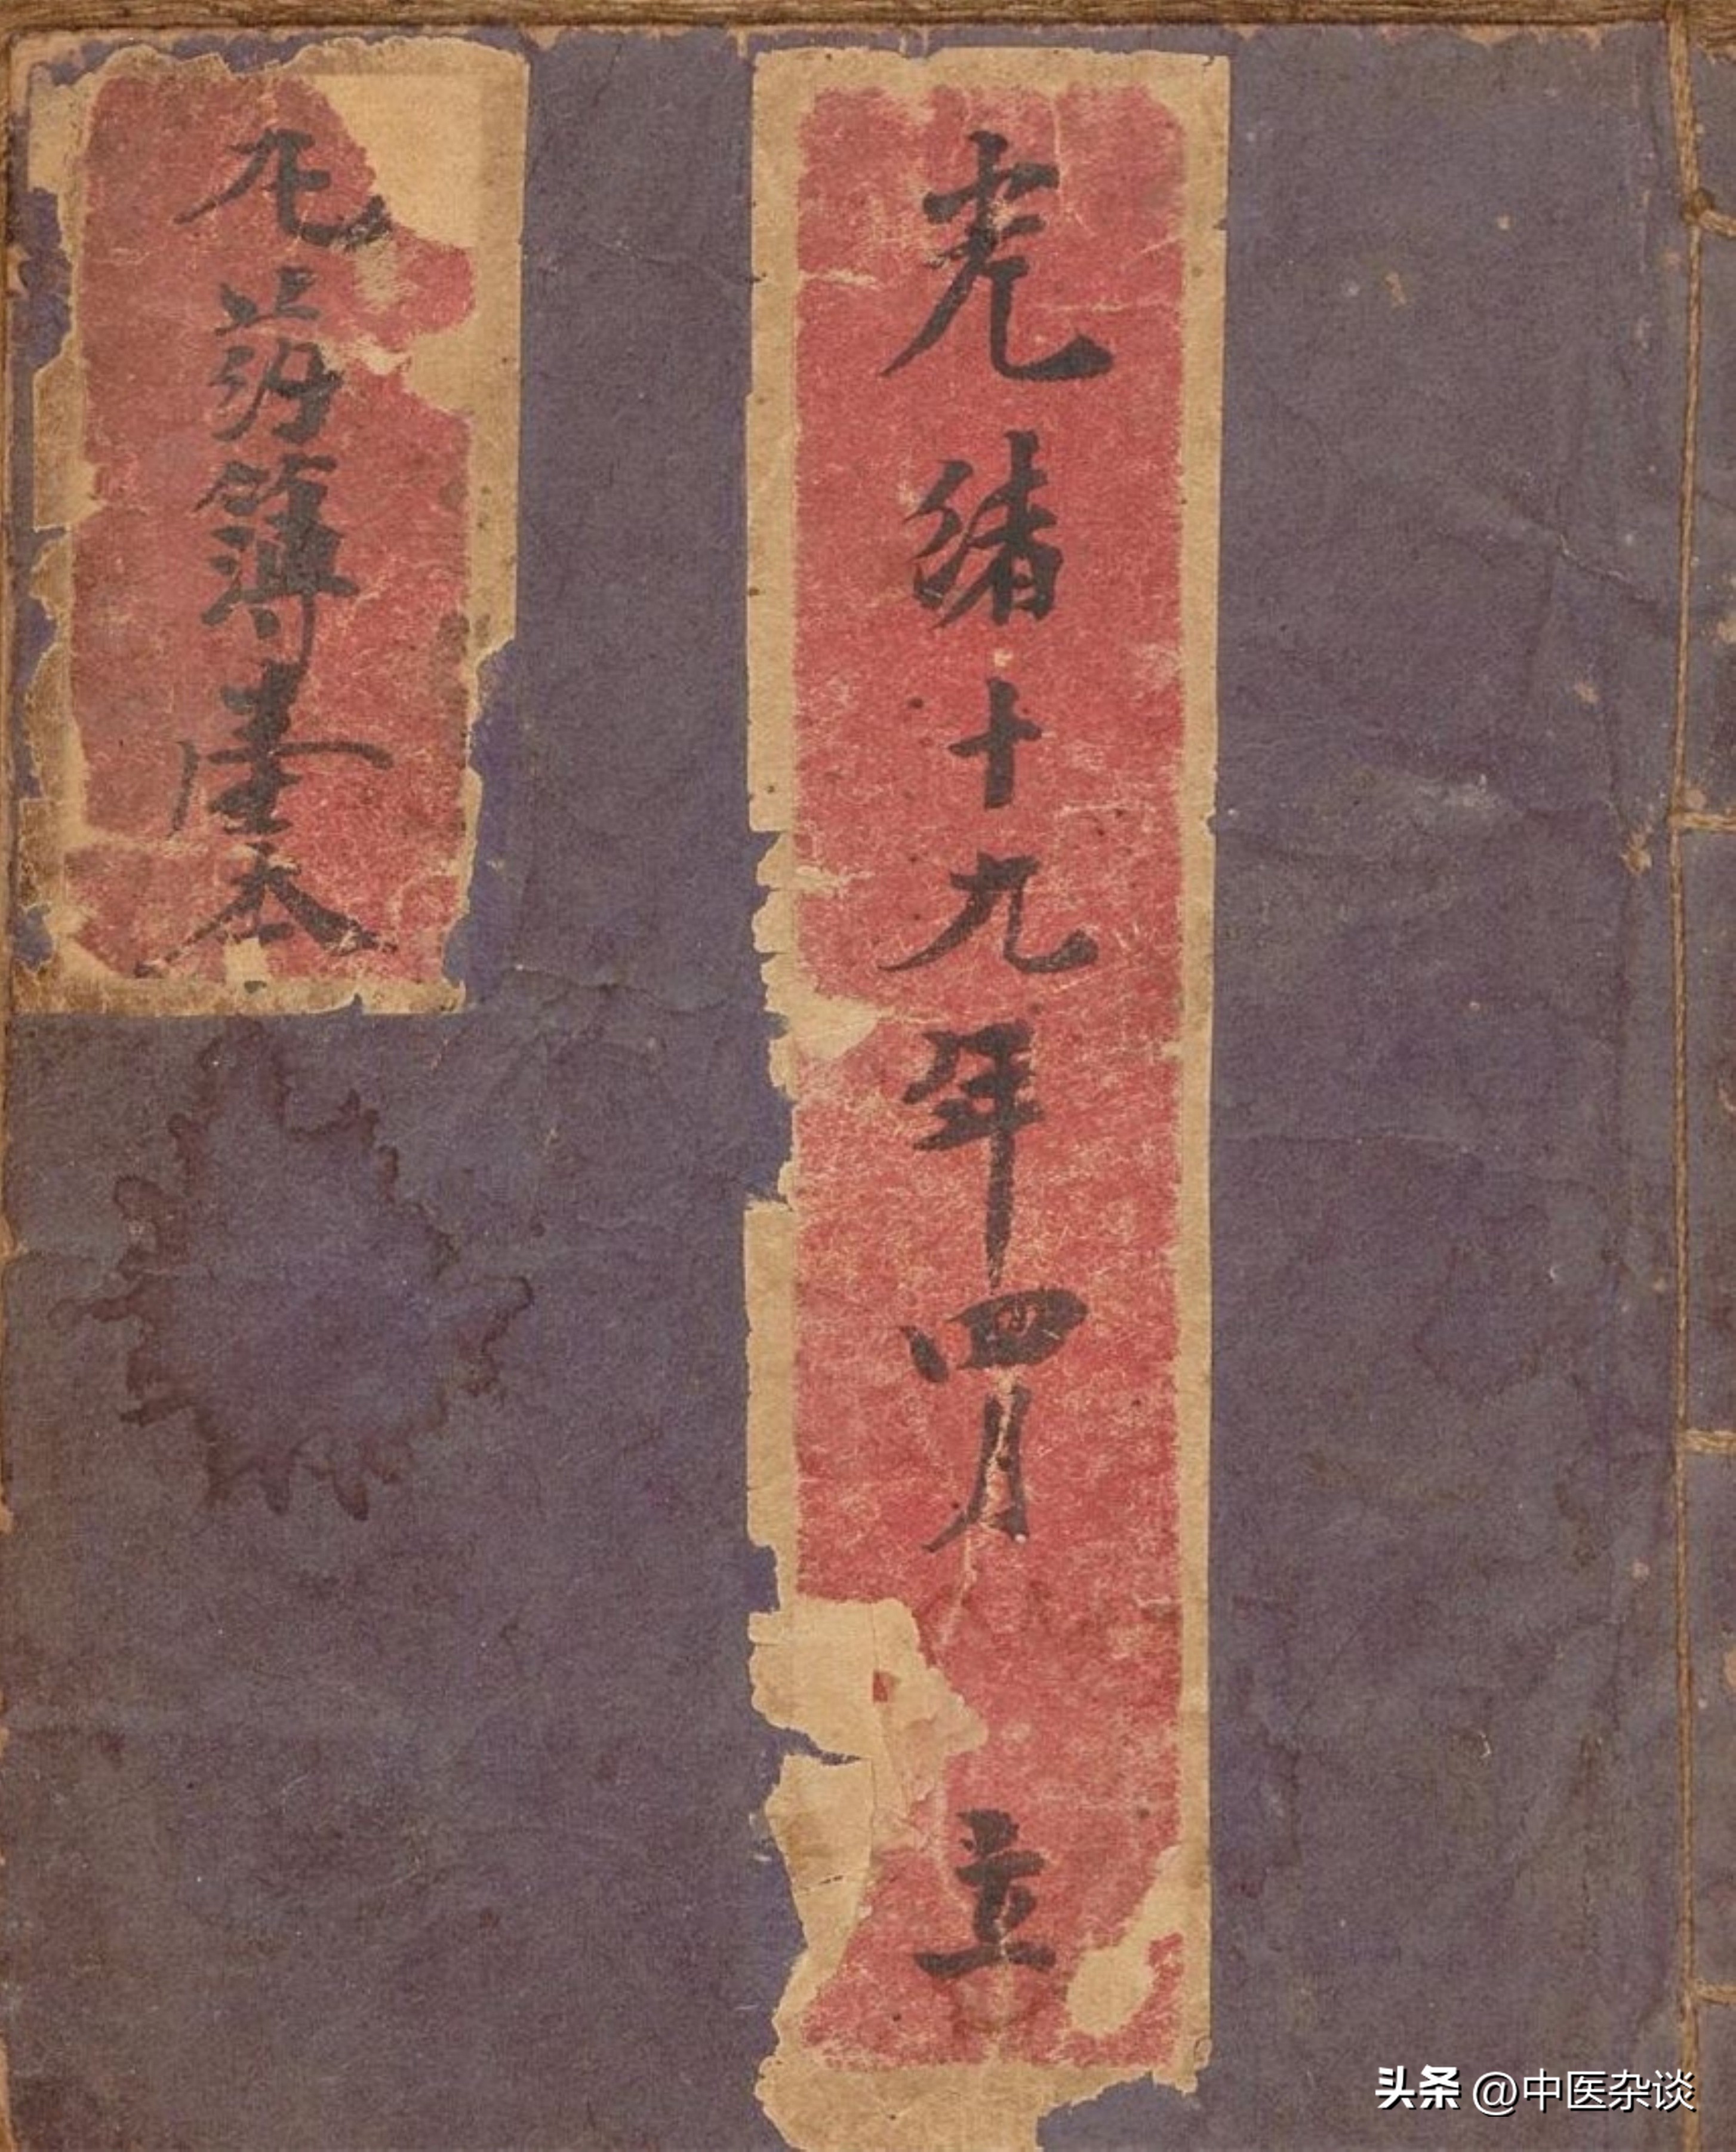 光緒十九年四月 立
丸药簿壹本
头条 @中医杂谈